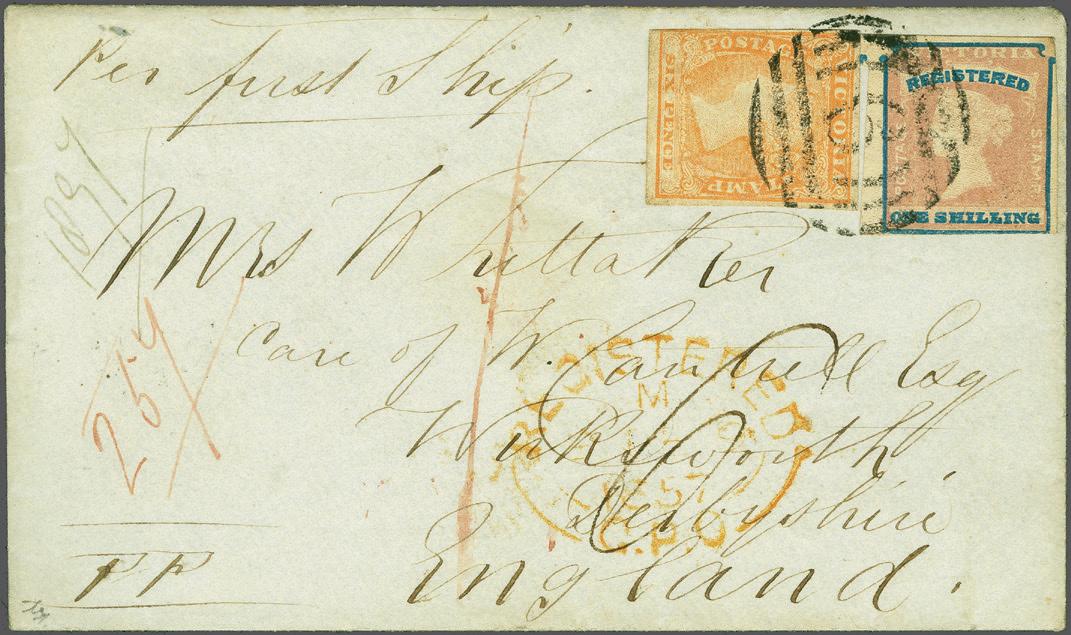 Per first Ship.
POSTAGE
VICTORIA
STAMP
SIX PENCE
VICTORIA
REGISTERED
STAMP
ONE SHILLING
Mrs Whittaker
Care of W. Cantrell Esq
Wirksworth
Derbyshire
England.
REGISTERED
M
57
G.P.O
257
PP